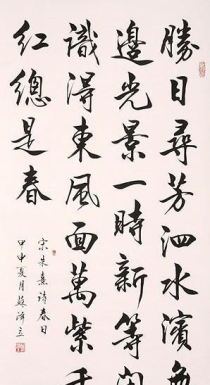 勝日尋芳泗水濱
邊光景一時新等閒
識得東風面萬紫千
紅總是春
宋朱熹詩春日
甲申夏月